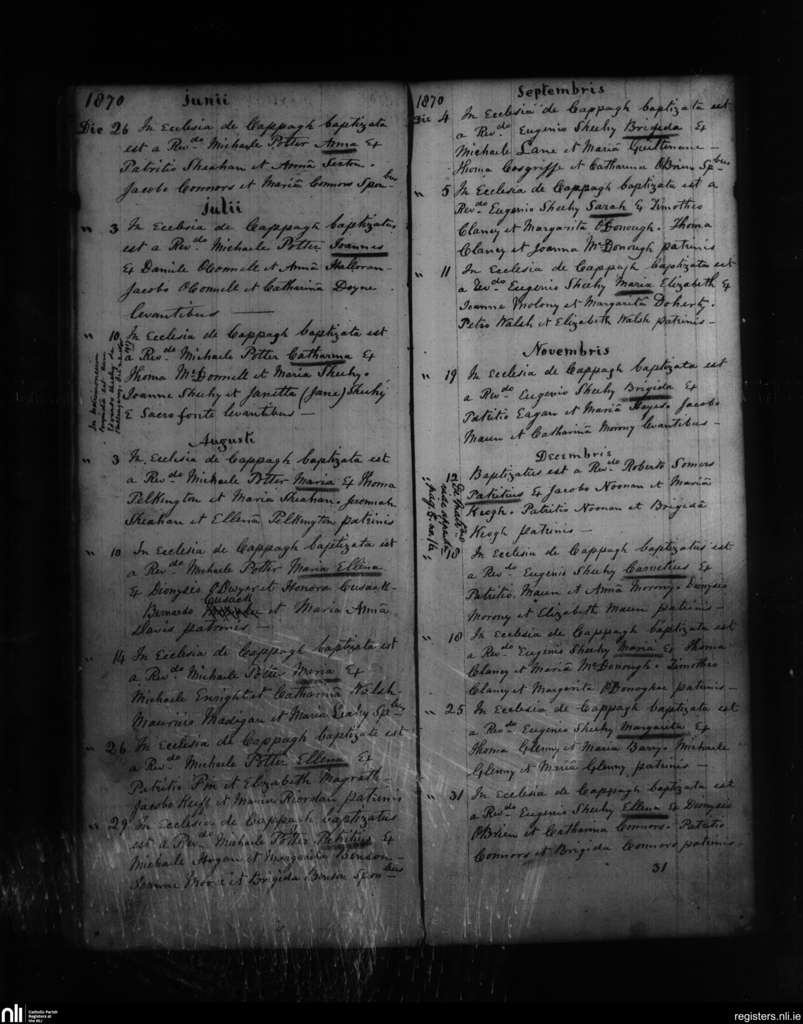 1870 Junii
Die 26 In Ecclesia de Cappagh baptizata
est a Rev.do Michaele Potter Anna Ex
Patritio Sheahan et Annâ Sexton.
Jacobo Connors et Mariâ Connors Spon.bus
Julii
" 3 In Ecclesia de Cappagh baptizatus
est a Rev.do Michaele Potter Joannes
Ex Daniele O'Connell et Annâ Halloran
Jacobo O'Connell et Catharinâ Doyne
levantibus
" 10 In Ecclesia de Cappagh baptizata est
a Rev.do Michaele Potter Catharina Ex
Thoma McDonnell et Maria Sheehy.
Joanne Sheehy et Janetta (Jane) Sheehy
E Sacro fonte levantibus —
In matrimonium
Augusti
" 3 In Ecclesia de Cappagh baptizata est
a Rev.do Michaele Potter Maria Ex Thoma
Pelkington et Maria Sheahan. Jeremiah
Sheahan et Ellenâ Pelkington patrinis
" 10 In Ecclesia de Cappagh baptizata est
a Rev.do Michaele Potter Maria Ellena
Ex Dionysio O'Dwyer et Honora Cusack
Cusack
Bernardo et Maria Annâ
Davis patrinis —
" 14 In Ecclesia de Cappagh baptizata est
a Rev.do Michaele Potter Maria Ex
Michaele Enright et Catharinâ Walsh
Maurino Madigan et Maria Leahy Sp.bus
" 26 In Ecclesia de Cappagh baptizata est
a Rev.do Michaele Potter Ellena Ex
Patritio Pin et Elizabeth Magrath
Jacobo Keiff et Maria Riordan patrinis
" 29 In Ecclesia de Cappagh baptizatus
est a Rev.do Michaele Potter Patritius Ex
Michaele Hogan et Margarita Benson
Joanne et Brigida Benson Spon.bus
1870 Septembris
Die 4 In Ecclesia de Cappagh baptizata est
a Rev.do Eugenio Sheehy Brigida Ex
Michaele Lane et Maria
Thoma Cosgriffe et Catharina O'Brien Sp.bus
" 5 In Ecclesia de Cappagh baptizata est a
Rev.do Eugenio Sheehy Sarah Ex Timotheo
Clancy et Margarita O'Donough. Thoma
Clancy et Joanna McDonough patrinis
" 11 In Ecclesia de Cappagh baptizata est
a Rev.do Eugenio Sheehy Maria Elizabeth Ex
Joanne et Margarita Doherty.
Petro Walsh et Elizabeth Walsh patrinis —
Novembris
" 19 In Ecclesia de Cappagh baptizata est
a Rev.do Eugenio Sheehy Brigida Ex
Patritio Eagan et Mariâ Hayes. Jacobo
Maun et Catharinâ Morony levantibus —
Decembris
12 Baptizatus est a Rev.do Roberto Somers
Patritius Ex Jacobo Noonan et Mariâ
Keogh. Patritio Noonan et Brigidâ
Keogh patrinis —
18 In Ecclesia de Cappagh baptizatus est
a Rev.do Eugenio Sheehy Cornelius Ex
Patritio Maun et Annâ Morony. Dionysio
Morony et Elizabeth Maun patrinis —
" 18 In Ecclesia de Cappagh baptizata est
a Rev.do Eugenio Sheehy Maria Ex Thoma
Clancy et Mariâ McDonough. Timotheo
Clancy et Margarita O'Donoghue patrinis —
" 25 In Ecclesia de Cappagh baptizata est
a Rev.do Eugenio Sheehy Margarita Ex
Thoma Glenny et Maria Barry. Michaele
Glenny et Mariâ Glenny patrinis —
" 31 In Ecclesia de Cappagh baptizata est
a Rev.do Eugenio Sheehy Ellena Ex Dionysio
O'Brien et Catharina Connors. Patritio
Connors et Brigida Connors patrinis —
31
nli Catholic Parish
Registers at
the NLI
registers.nli.ie